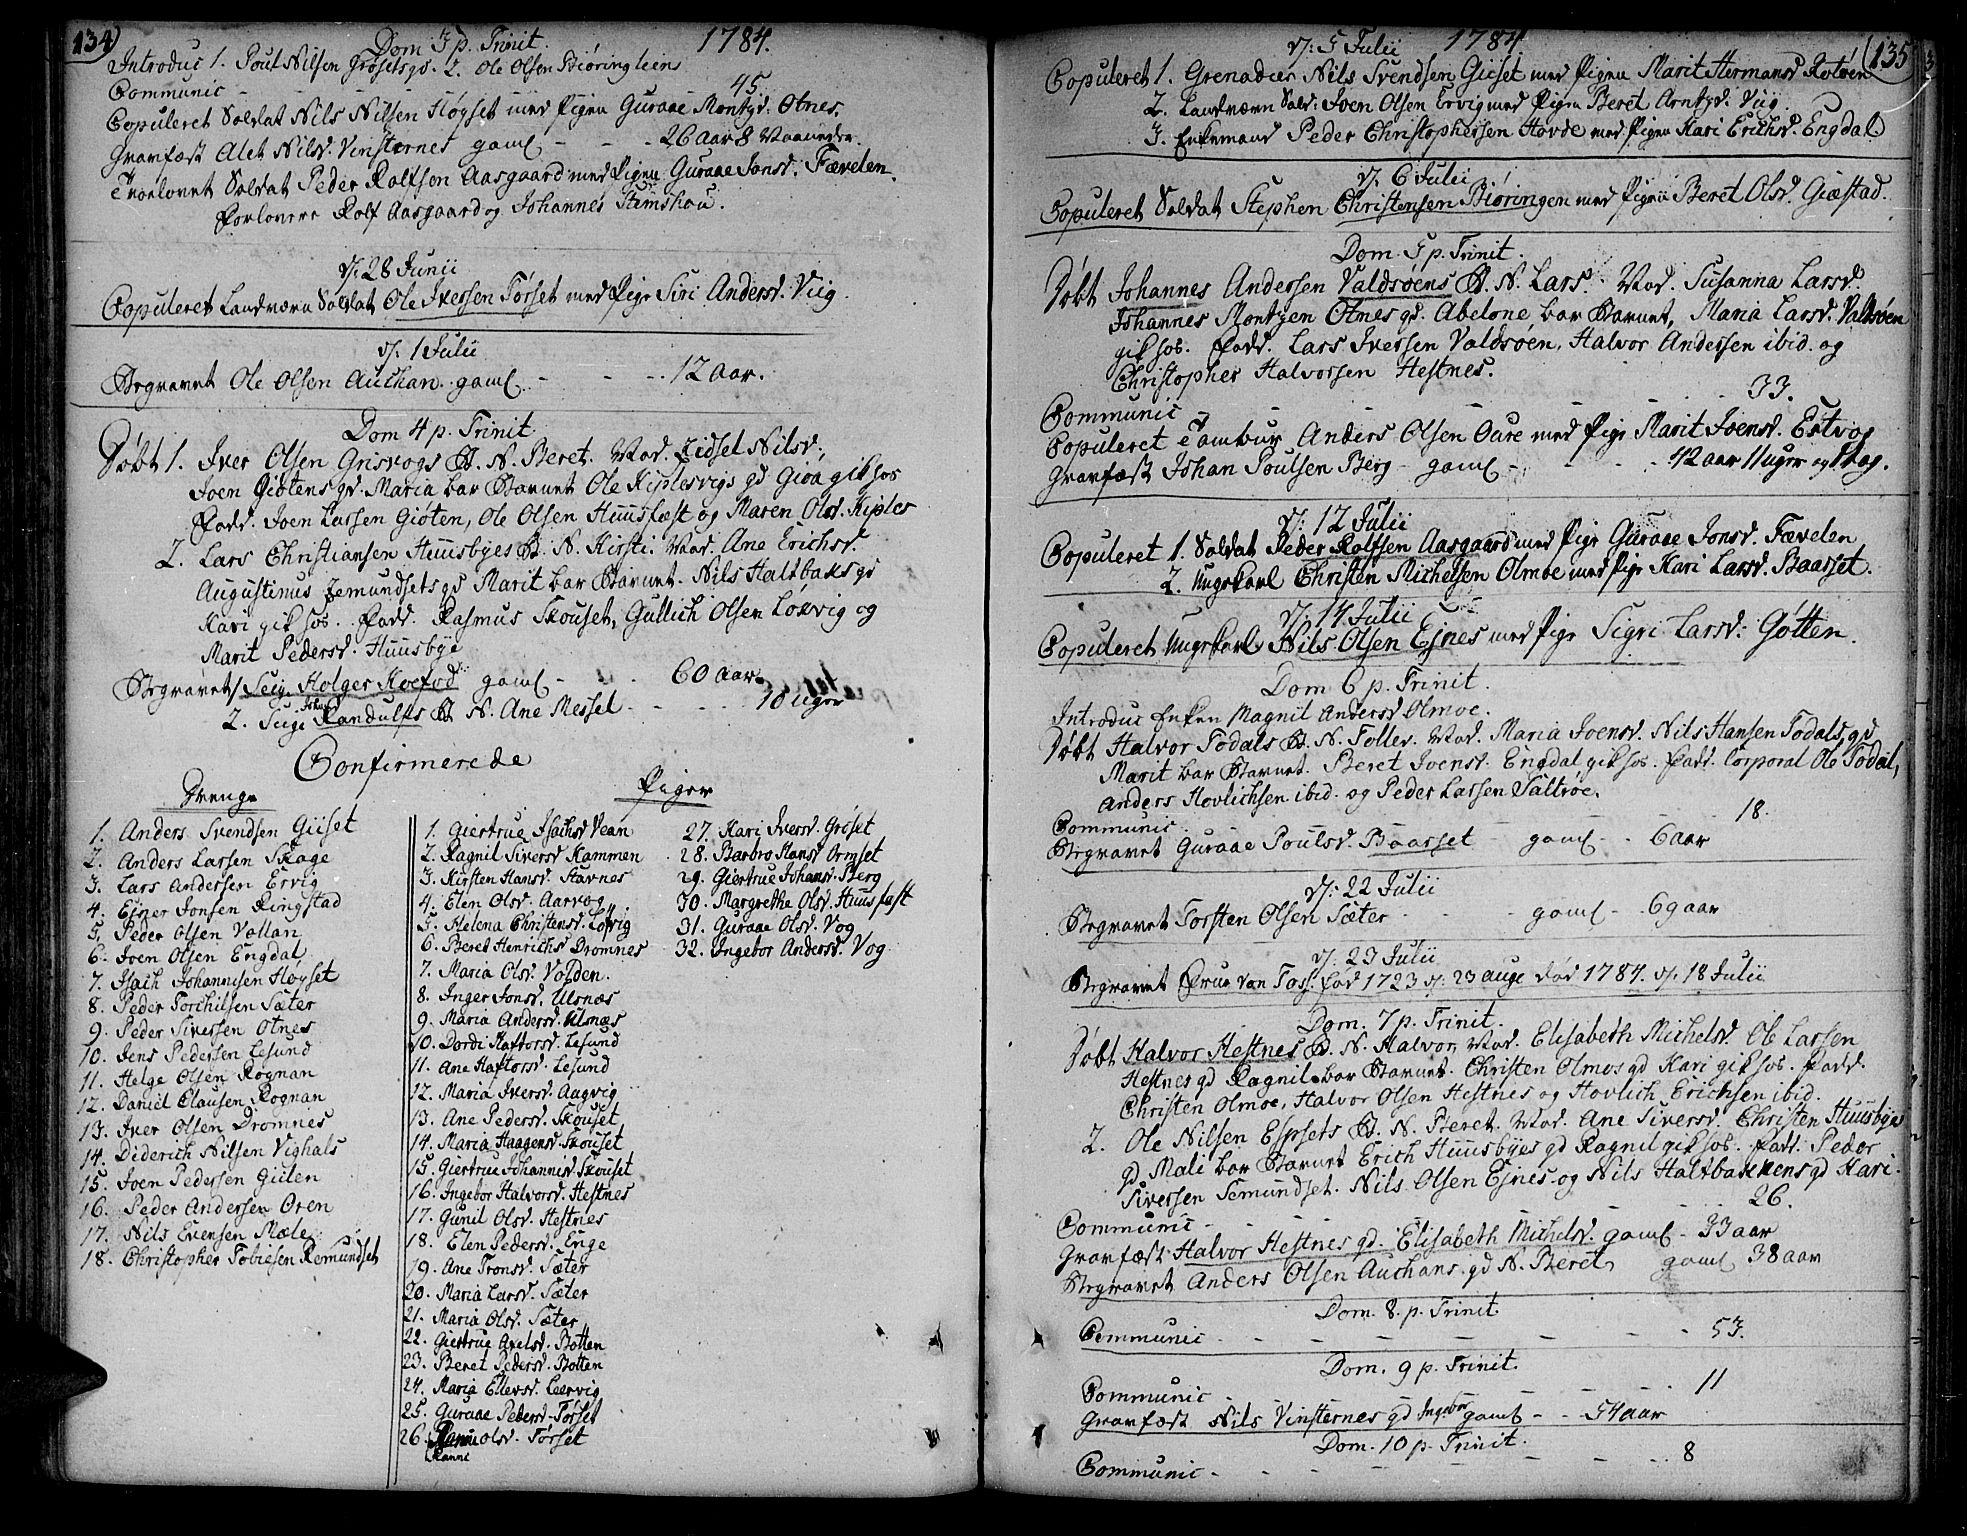 134)
Dom 3 p. Trinit. 1784.
Introduc 1. Poul Nilsen Grøsetsgd. 2. Ole Olsen Biøringlein
Communic - - - 45
Copuleret Soldat Nils Nilsen Høyset med Pigen Guraae Montzd. Otnes.
Gravfæst Alet Nilsd. Vinsternes gaml - - - 26 Aar 8 Maaneder.
Troelovet Soldat Peder Rolfsen Aasgaard med Pigen Guraae Jonsd. Fævelen.
Forlovere Rolf Aasgaard og Johannes Stemshou.
d/: 28 Junii
Copuleret Landværn Soldat Ole Iversen Torset med Pige Siri Andersd. Viig.
d/: 1 Julii
Begravet Ole Olsen Auchan. gaml - - - 12 Aar.
Dom 4 p. Trinit.
Døbt 1. Iver Olsen Grisvogs B. N. Beret. Mod. Zidsel Nilsd.,
Joen Giøtens gd. Maria bar Barnet Ole Kiplesvigs gd Gioa gik hos
Fadd. Joen Larsen Giøten, Ole Olsen Huusfæst og Maren Olsd. Kiples
2. Lars Christiansen Huusbyes B. N. Kirsti. Mod. Ane Erichsd.
Augustinus Semundsets gd Marit bar Barnet. Nils Haltbaks gd
Kari gik hos. Fadd. Rasmus Skouset, Gullich Olsen Løxvig og
Marit Pedersd. Huusbye
Begravet 1 Seig. Holger Koefod gaml - - - 60 Aar.
2. Seigr Johan Randulfs B. N. Ane Messel - - - 10 Uger
Confirmerede
Drenge
1. Anders Svendsen Giiset
2. Anders Larsen Skage
3. Lars Andersen Ervig
4. Ejner Jonsen Ringstad
5. Peder Olsen Vollan
6. Joen Olsen Engdal
7. Isach Johannesen Høyset
8. Peder Torchilsen Sæter
9. Peder Siversen Otnes
10. Jens Pedersen Lesund
11. Helge Olsen Rognan
12. Daniel Clausen Rognan
13. Iver Olsen Dromnes
14. Diderich Nilsen Vighals
15. Joen Pedersen Giilen
16. Peder Andersen Oren
17. Nils Evensen Mæle
18. Christopher Tobiesen Remundset
Piger
1. Giertrue Isachsd Vean
2. Ragnil Siversd Kammen
3. Kirsten Hansd. Stavnes
4. Elen Olsd. Aarvog
5. Helena Christensd. Løvig
6. Beret Henrichsd Dromnes
7. Maria Olsd. Volden.
8. Inger Jonsd. Ulsnæs
9. Maria Andersd. Ulsnæs
10. Dordi Haftorsd. Lesund
11. Ane Haftorsd. Lesund
12. Maria Iversd. Augvig
13. Ane Pedersd. Skouset
14. Maria Haagensd. Skouset
15. Giertrue Johannisd. Skouset
16. Ingebor Halvorsd. Hestnes
17. Gunil Olsd. Hestnes
18. Elen Pedersd. Enge
19. Ane Tronsd. Sæter
20. Maria Larsd. Sæter
21. Maria Olsd. Sæter
22. Giertrue Axelsd. Botten
23. Beret Pedersd. Botten
24. Maria Ellevsd. Leervig
25. Guraae Pedersd. Torset
26. Olsd. Torset
Ranne
27. Kari Iversd. Grøset
28. Barbro Hansd Ormset
29. Giertrue Johansd. Berg
30. Margrethe Olsd. Huusfast
31. Guraae Olsd. Vog
32. Ingebor Andersd. Vog
d/: 5 Julii 1784 (135
Copuleret 1. Grenadeer Nils Svendsen Giiset med Pigen Marit Hermansd Rotøen
2. Landværn Sold: Joen Olsen Ervig med Pigen Beret Arntzd. Viig.
3. Enkemand Peder Christophersen Hovde med Pigen Kari Erichsd. Engdal.
d/: 6 Julii
Copuleret Soldat Stephen Christensen Biøringen med Pigen Beret Olsd. Giæstad.
Dom. 5 p. Trinit.
Døbt Johannes Andersen Valdsøens B. N. Lars. Mod. Susanna Larsd.
Johannes Montzen Otnes gd. Abelone bar Barnet, Maria Larsd. Valdsøen
gik hos. Fadd. Lars Iversen Valdsøen, Halvor Andersen ibid. og
Christopher Halvorsen Hestnes.
Communic - - - 33.
Copuleret Tambur Anders Olsen Oare med Pige Marit Joensd. Estvog
Gravfæst Johan Poulsen Berg - gaml - - - 42 Aar 11 Uger og 1 Dag.
d/: 12 Julii
Copuleret 1. Soldat Peder Rolfsen Aasgaard med Pige Guraae Jonsd. Fævelen
2. Ungekarl Christen Michelsen Olmoe med Pige Kari Larsd. Baasset.
d/: 14 Julii
Copuleret Ungekarl Nils Olsen Ejnes med Pige Sigri Larsd. Gøtten.
Dom 6 p. Trinit.
Introduc Enken Magnil Andersd Olmoe.
Døbt Halvor Todals B. N. Tolle. Mod. Maria Joensd. Nils Hansen Todals gd
Marit bar Barnet. Beret Ivensd. Engdal gik hos. Fadd. Corporal Ole Todal,
Anders Hovlichsen ibid. og Peder Larsen Saltrøe.
Communic. 18.
Begravet Guraae Poulsd. Baasset gaml - - 6 Aar
d/: 22 Julii
Begravet Torsten Olsen Sæter - - - gaml - 69 Aar
d/: 23 Julii
Begravet Frue Von Tass. fød 1723 d/: 23 Aug. død 1784. d/: 18 Julii
Dom. 7 p. Trinit.
Døbt Halvor Hestnes B. N. Halvor, Mod. Elisabeth Michelsd. Ole Larsen
Hestnes gd Ragnil bar Barnet. Christen Olmos gd Kari gik hos. Fadd.
Christen Olmoe, Halvor Olsen Hestnes og Hovlich Erichsen ibid.
2. Ole Nilsen Espsets B. N. Beret. Mod. Ane Siversd. Christen Huusbyes
gd Mali bar Barnet Erich Huusbyes gd Ragnil gik hos. Fadd. Peder
Siversen Semundset. Nils Olsen Ejnes og Nils Haltbakkens gd Kari.
Communic - - - 26.
Gravfæst Halvor Hestnes gd. Elisabeth Michelsd. gaml - 33 Aar
Begravet Anders Olsen Auchans gd N. Beret, gaml 38 Aar
Dom. 8. p. Trinit.
Communic - - - 53.
Dom. 9 p. Trinit.
Communic - - - 11
Gravfæst Nils Vinsternes gd Ingebor gaml - - 54 Aar
Dom. 10 p. Trinit.
Communic - - - 8